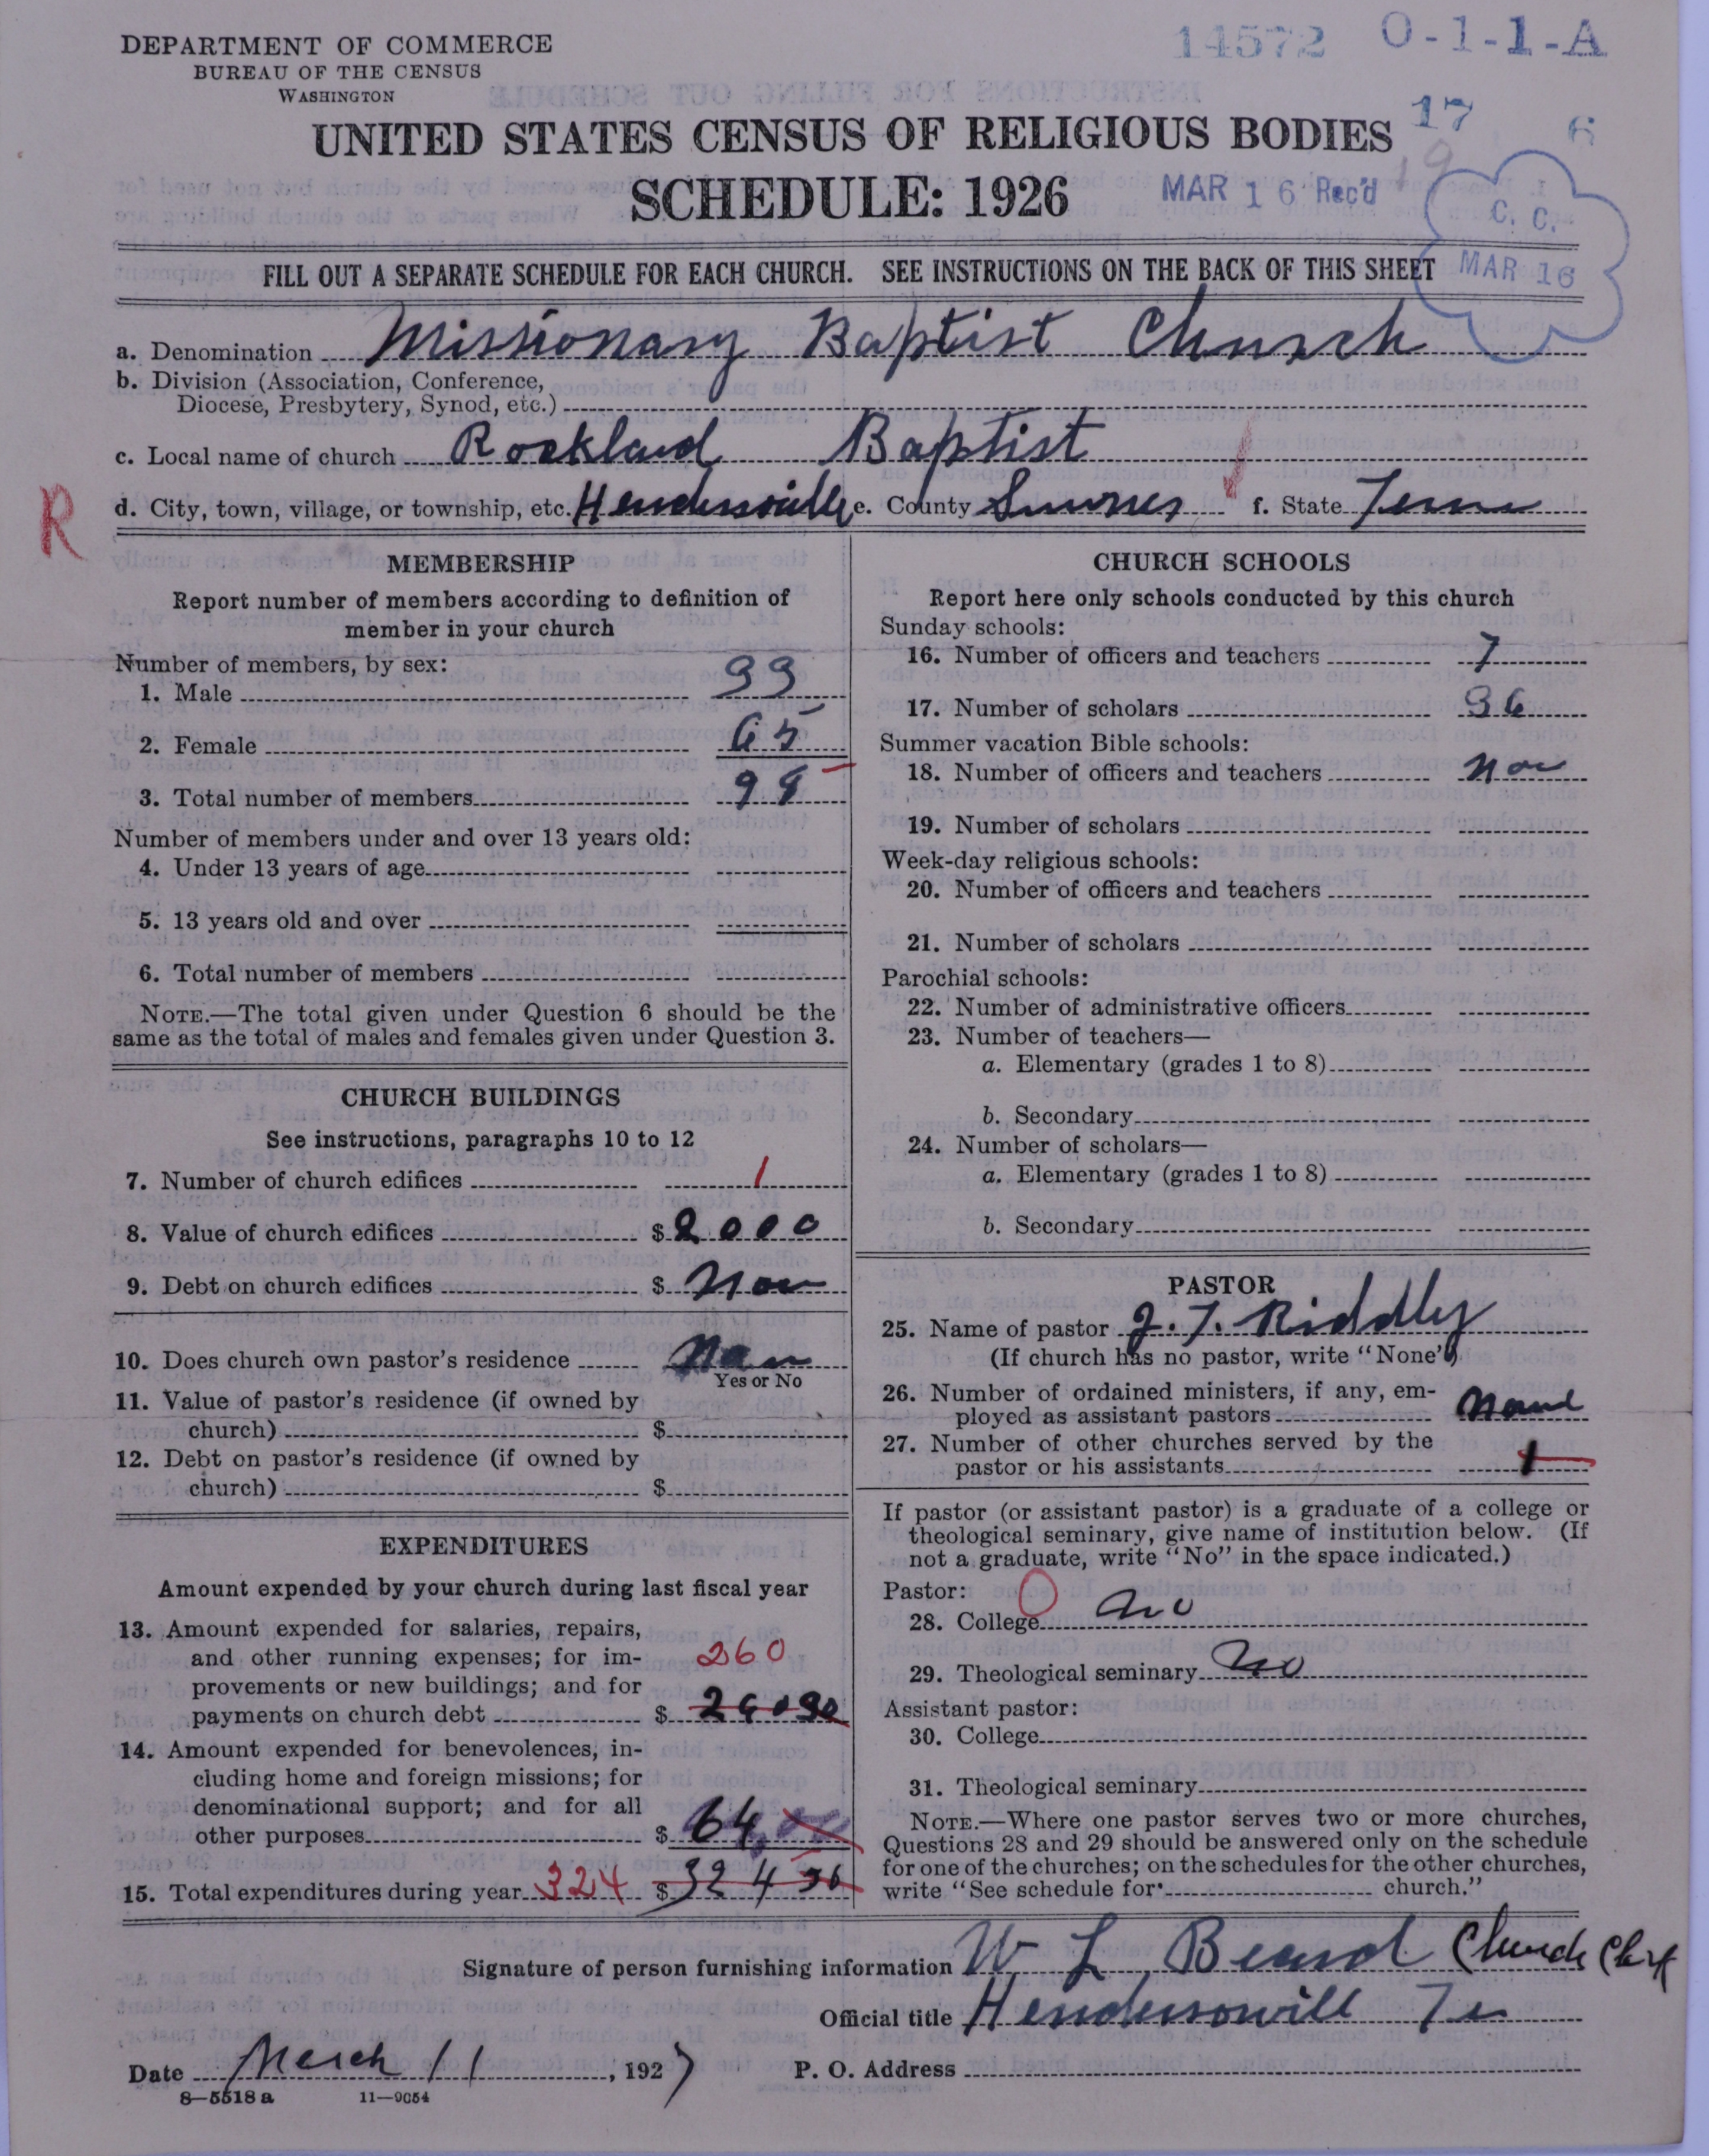 DEPARTMENT OF COMMERCE
BUREAU OF THE CENSUS
WASHINGTON
14572 O-1-1-A
17 6
UNITED STATES CENSUS OF RELIGIOUS BODIES
SCHEDULE: 1926
MAR 16 Rec'd
C. C.
MAR 16
FILL OUT A SEPARATE SCHEDULE FOR EACH CHURCH. SEE INSTRUCTIONS ON THE BACK OF THIS SHEET
a. Denomination Missionary Baptist Church
b. Division (Association, Conference,
Diocese, Presbytery, Synod, etc.)
c. Local name of church Rockland Baptist
R
d. City, town, village, or township, etc. Hendersonville e. County Sumner f. State Tenn
MEMBERSHIP
Report number of members according to definition of
member in your church
Number of members, by sex:
1. Male 33
2. Female 65
3. Total number of members 98
Number of members under and over 13 years old:
4. Under 13 years of age
5. 13 years old and over
6. Total number of members
NOTE.—The total given under Question 6 should be the
same as the total of males and females given under Question 3.
CHURCH BUILDINGS
See instructions, paragraphs 10 to 12
7. Number of church edifices 1
8. Value of church edifices $ 2000
9. Debt on church edifices $ Non
10. Does church own pastor's residence
Yes or No
11. Value of pastor's residence (if owned by
church) $
12. Debt on pastor's residence (if owned by
church) $
EXPENDITURES
Amount expended by your church during last fiscal year
13. Amount expended for salaries, repairs,
and other running expenses; for im-
provements or new buildings; and for
payments on church debt $
260
14. Amount expended for benevolences, in-
cluding home and foreign missions; for
denominational support; and for all
other purposes $ 64
15. Total expenditures during year 324 $ 324
CHURCH SCHOOLS
Report here only schools conducted by this church
Sunday schools:
16. Number of officers and teachers 7
17. Number of scholars 36
Summer vacation Bible schools:
18. Number of officers and teachers Non
19. Number of scholars
Week-day religious schools:
20. Number of officers and teachers
21. Number of scholars
Parochial schools:
22. Number of administrative officers
23. Number of teachers—
a. Elementary (grades 1 to 8)
b. Secondary
24. Number of scholars—
a. Elementary (grades 1 to 8)
b. Secondary
PASTOR
25. Name of pastor J. T. Riddly
(If church has no pastor, write "None")
26. Number of ordained ministers, if any, em-
ployed as assistant pastors
27. Number of other churches served by the
pastor or his assistants 1
If pastor (or assistant pastor) is a graduate of a college or
theological seminary, give name of institution below. (If
not a graduate, write "No" in the space indicated.)
Pastor:
28. College no
29. Theological seminary no
Assistant pastor:
30. College
31. Theological seminary
NOTE.—Where one pastor serves two or more churches,
Questions 28 and 29 should be answered only on the schedule
for one of the churches; on the schedules for the other churches,
write "See schedule for church."
Signature of person furnishing information W L Beard Church Clerk
Official title Hendersonvill Te
Date March 11, 1927 P. O. Address
8—5518 a 11—9054